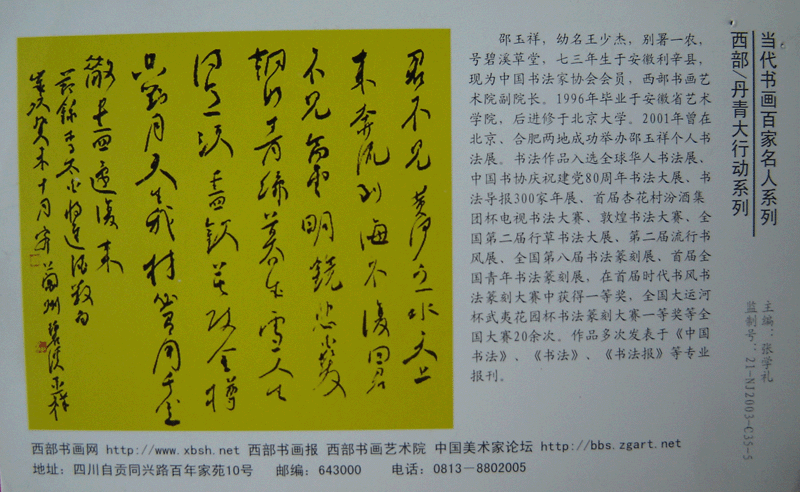 君不見黃河之水天上
來奔流到海不復回君
不見高堂明鏡悲白髮
朝如青絲暮成雪人生
得意須盡歡莫使金樽
空對月天生我材必有用千金
散盡還復來
節錄李太白將進酒數句
歲次癸未十月 蘭州 碧溪玉祥
邵玉祥，幼名王少杰，别署一农，
号碧溪草堂，七三年生于安徽利辛县，
现为中国书法家协会会员，西部书画艺
术院副院长。1996年毕业于安徽省艺术
学院，后进修于北京大学。2001年曾在
北京、合肥两地成功举办邵玉祥个人书
法展。书法作品入选全球华人书法展、
中国书协庆祝建党80周年书法大展、书
法导报300家年展、首届杏花村汾酒集
团杯电视书法大赛、敦煌书法大赛、全
国第二届行草书法大展、第二届流行书
风展、全国第八届书法篆刻展、首届全
国青年书法篆刻展，在首届时代书风书
法篆刻大赛中获得一等奖，全国大运河
杯武夷花园杯书法篆刻大赛一等奖等全
国大赛20余次。作品多次发表于《中国
书法》、《书法》、《书法报》等专业
报刊。
当代书画百家名人系列
西部/丹青大行动系列
主编：张学礼
监制号：21-NJ2003-C35-5
西部书画网 http://www.xbsh.net 西部书画报 西部书画艺术院 中国美术家论坛 http://bbs.zgart.net
地址：四川自贡同兴路百年家苑10号 邮编：643000 电话：0813－8802005